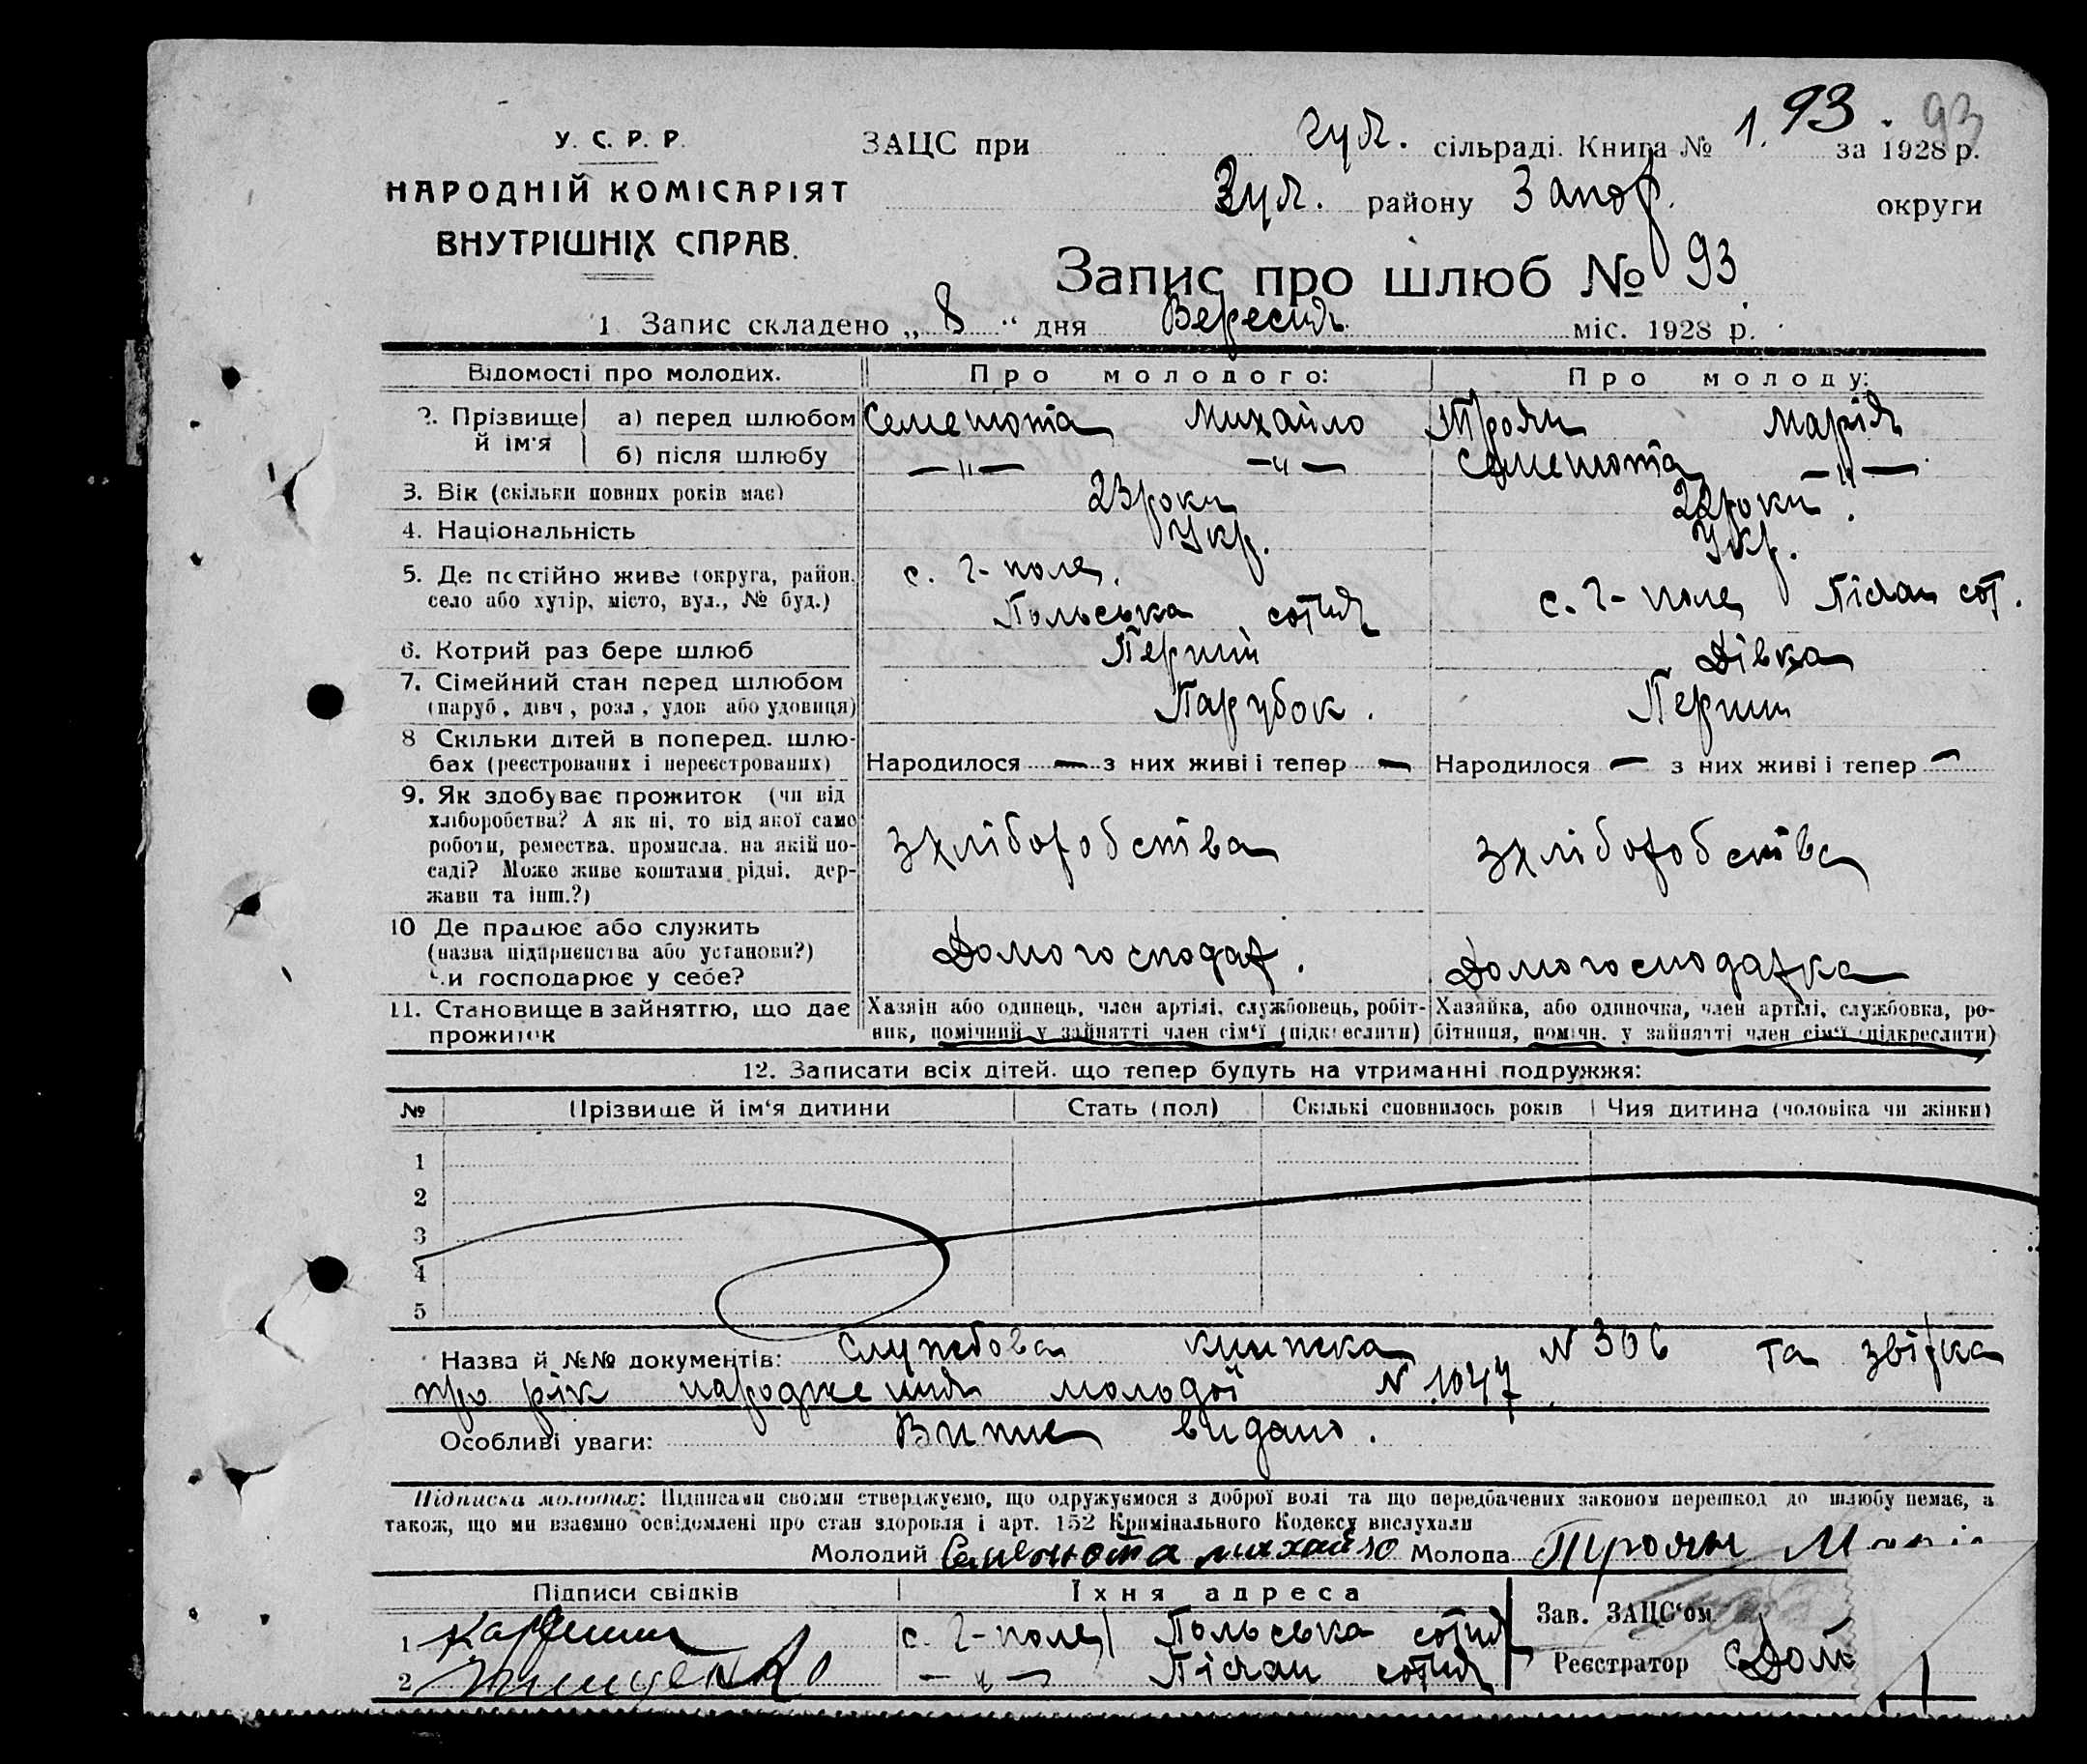 1. 93. 93
У. С. Р. Р.
НАРОДНІЙ КОМІСАРІЯТ
ВНУТРІШНІХ СПРАВ.
ЗАЦС при гул. сільраді. Книга № за 1928 р.
Гул. району Запор. округи
Запис про шлюб № 93
1 Запис складено „ 8 “ дня Вересня міс. 1928 р.
Відомості про молодих. Про молодого: Про молоду:
2. Прізвище й ім'я а) перед шлюбом Семенюта Михайло Троян Марія
б) після шлюбу —"— —"— Семенюта —"—
3. Вік (скільки повних років має) 23 роки 22 роки.
4. Національність Укр. Укр.
5. Де постійно живе (округа, район, с. Г-поле, с. Г-поле Післан сот.
село або хутір, місто, вул., № буд.) Польська сотня
6. Котрий раз бере шлюб Перший Дівка
7. Сімейний стан перед шлюбом Парубок. Перший
(паруб., дівч., розл., удов. або удовиця)
8 Скільки дітей в поперед. шлю-
бах (реєстрованих і нереєстрованих) Народилося — з них живі і тепер — Народилося — з них живі і тепер —
9. Як здобуває прожиток (чи від
хліборобства? А як ні, то від якої само
роботи, ремества, промисла, на якій по-
саді? Може живе коштами рідні, дер-
жави та інш.?) З хліборобства З хліборобства
10 Де працює або служить
(назва підприємства або установи?)
Чи господарює у себе? Домогосподар. Домогосподарка
11. Становище в зайняттю, що дає Хазяїн або одинець, член артілі, службовець, робіт- Хазяйка, або одиночка, член артілі, службовка, ро-
прожиток ник, помічний у зайнятті член сім'ї (підкреслити) бітниця, помічн. у зайнятті член сім'ї (підкреслити)
12. Записати всіх дітей, що тепер будуть на утриманні подружжя:
№ Прізвище й ім'я дитини Стать (пол) Скількі сповнилось років Чия дитина (чоловіка чи жінки)
1
2
3
4
5
Назва й №№ документів: Службова книжка N 306 та звірка
про рік народження молодої N 1047
Особливі уваги: Витяг видано.
Підписка молодих: Підписами своїми стверджуємо, що одружуємося з доброї волі та що передбачених законом перешкод до шлюбу немає, а
також, що ми взаємно освідомлені про стан здоровля і арт. 152 Кримінального Кодексу вислухали
Молодий Семенюта Михайло Молода Троян
Підписи свідків Їхня адреса Зав. ЗАЦС'ом
1 с. Г-поле Польська сотня
2 —"— Післан сотня Реєстратор